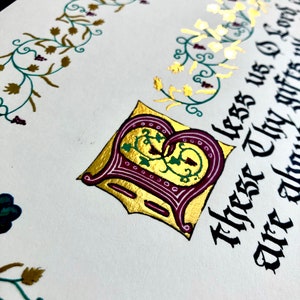 Bless us O Lord
these Thy gifts
are abo